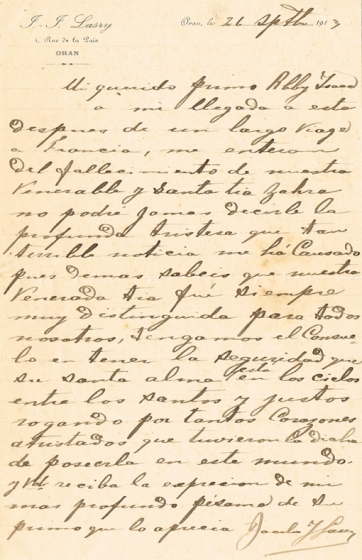 J.-J. Lasry
1, Rue de la Paix
ORAN
Oran, le 26 Spth 1913
Mi querido primo Rbby Isaac
a mi llegada a esta
despues de un largo viage
a Francia, me enteron
del fallecimiento de nuestra
Venerable y Santa tia Zahra
no podré jamas decirle la
profunda tristesa que tan
terrible noticia me há causado
pues demas sabeis que nuestra
Venerada tia fué siempre
muy distinguida para todos
nosotros, tengamos el Consue
lo en tener la seguridad que
su santa alma está en los cielos
entre los santos y justos
rogando por tantos Corazones
atristados que tuvieron la dicha
de poseerla en este mundo.
y Vd reciba la expresion de mi
mas profundo pésame de su
primo que lo aprecia